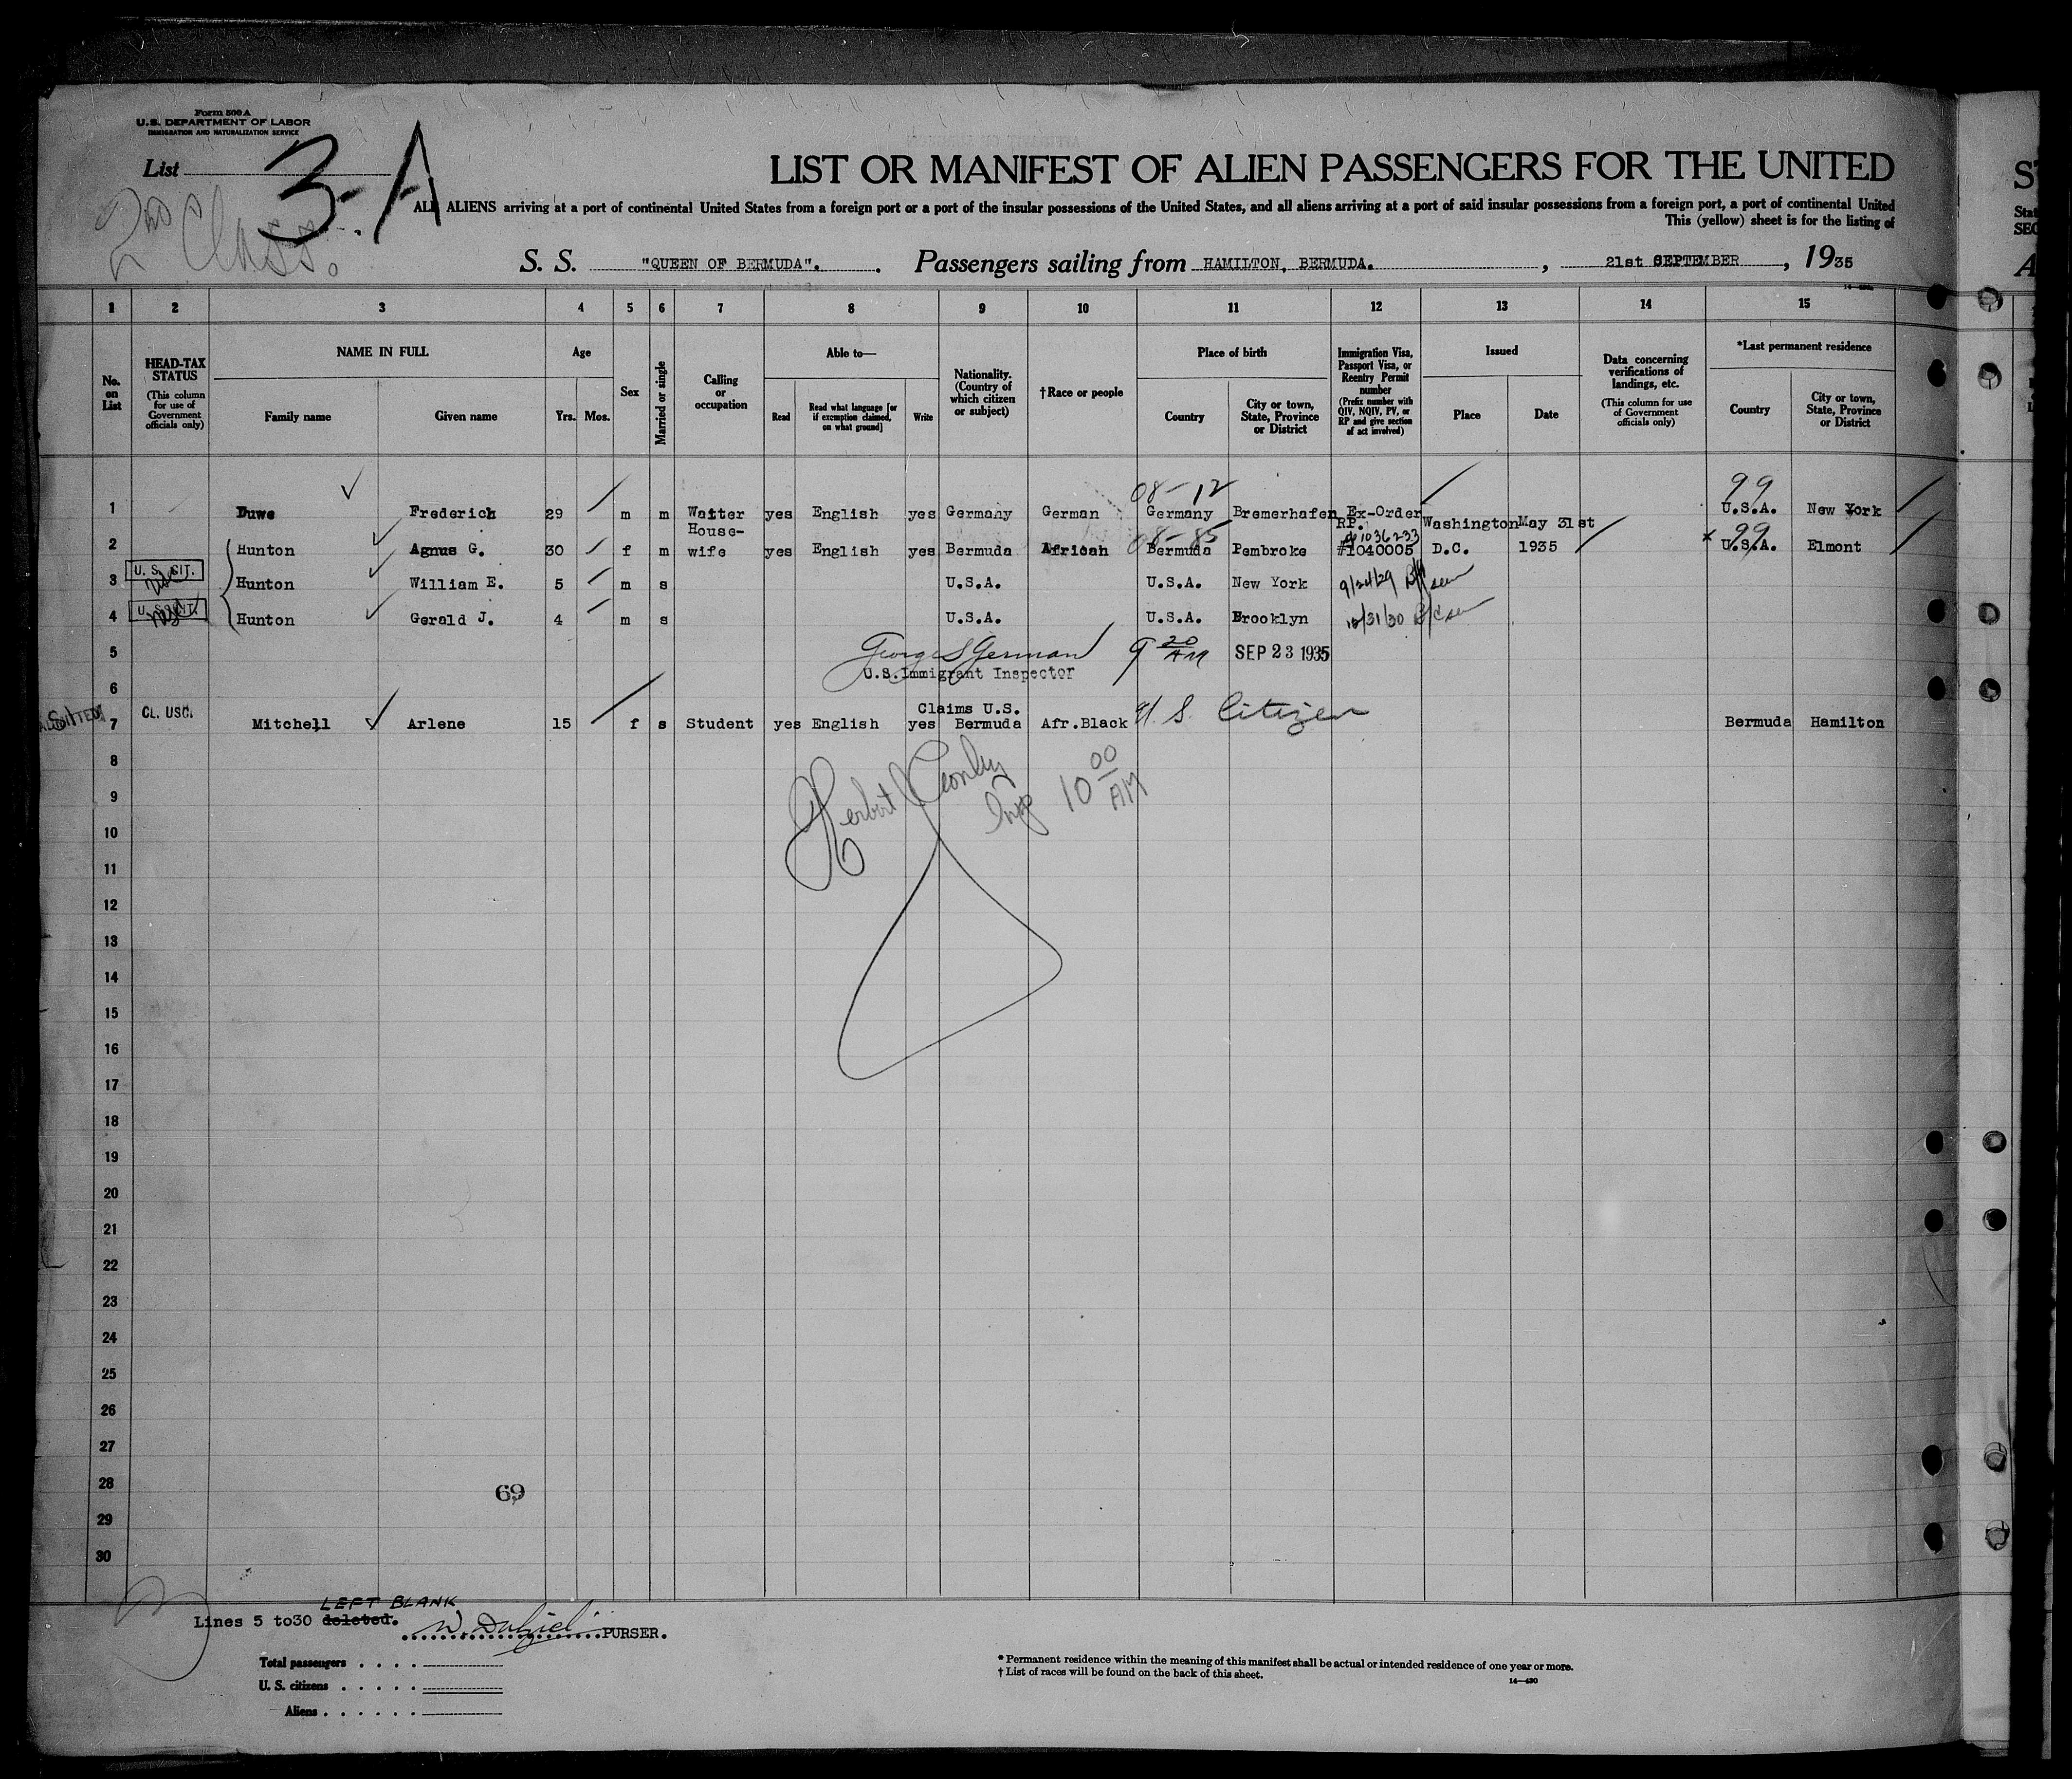 Form 500 A
U.S. DEPARTMENT OF LABOR
IMMIGRATION AND NATURALIZATION SERVICE
List 3-A
2nd Class.
LIST OR MANIFEST OF ALIEN PASSENGERS FOR THE UNITED
ALL ALIENS arriving at a port of continental United States from a foreign port or a port of the insular possessions of the United States, and all aliens arriving at a port of said insular possessions from a foreign port, a port of continental United
This (yellow) sheet is for the listing of
S. S. "QUEEN OF BERMUDA". Passengers sailing from HAMILTON, BERMUDA. , 21st SEPTEMBER , 1935
1 2 3 4 5 6 7 8 9 10 11 12 13 14 15
No. on List
HEAD-TAX STATUS (This column for use of Government officials only)
NAME IN FULL Family name Given name
Age Yrs. Mos.
Sex
Married or single
Calling or occupation
Able to— Read Read what language [or if exemption claimed, on what ground] Write
Nationality. (Country of which citizen or subject)
†Race or people
Place of birth Country City or town, State, Province or District
Immigration Visa, Passport Visa, or Reentry Permit number (Prefix number with QIV, NQIV, PV, or RP and give section of act involved)
Issued Place Date
Data concerning verifications of landings, etc. (This column for use of Government officials only)
*Last permanent residence Country City or town, State, Province or District
08-12 99
1 Duwe Frederich 29 m m Waiter yes English yes Germany German Germany Bremerhafen Ex-Order U.S.A. New York
08-85 RP. #1036233 99
2 Hunton Agnus G. 30 f m House-wife yes English yes Bermuda African Bermuda Pembroke #1040005 Washington D.C. May 31st 1935 U.S.A. Elmont
3 U. S. CIT. Hunton William E. 5 m s U.S.A. U.S.A. New York 9/24/29 B/C seen
4 U. S. CIT. Hunton Gerald J. 4 m s U.S.A. U.S.A. Brooklyn 10/31/30 B/C seen
5 George S German 9 20 AM SEP 23 1935
U.S.Immigrant Inspector
6
ADMITTED
7 CL. USC. Mitchell Arlene 15 f s Student yes English yes Claims U.S. Bermuda Afr.Black U. S. Citizen Bermuda Hamilton
8
Herbert Insp 10 00 AM
9
10
11
12
13
14
15
16
17
18
19
20
21
22
23
24
25
26
27
28
69
29
30
LEFT BLANK
Lines 5 to30 deleted.
W. Dalziel PURSER.
Total passengers
U. S. citizens
Aliens
* Permanent residence within the meaning of this manifest shall be actual or intended residence of one year or more.
† List of races will be found on the back of this sheet.
14—430